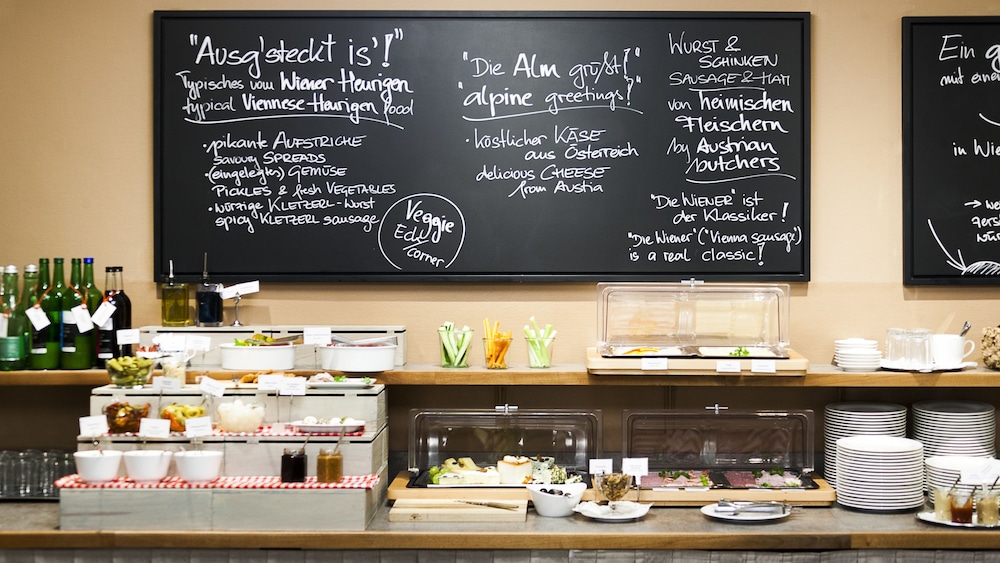 "Ausg'steckt is'!"
Typisches vom Wiener Heurigen
typical Viennese-Heurigen food
• pikante AUFSTRICHE
savoury SPREADS
• (eingelegtes) GEMÜSE
PICKLES & fresh VEGETABLES
• würzige KLETZERL-Wurst
spicy KLETZERL sausage
Veggie
Corner
"Die Alm grüßt!"
"alpine greetings!"
• köstlicher KÄSE
aus Österreich
delicious CHEESE
from Austria
WURST &
SCHINKEN
SAUSAGE & HAM
von heimischen
Fleischern
by Austrian
butchers
"Die WIENER" ist
der Klassiker!
"Die Wiener" ("Vienna sausage")
is a real classic!
Ein
mit eine
in Wie
→ we
gers
wür